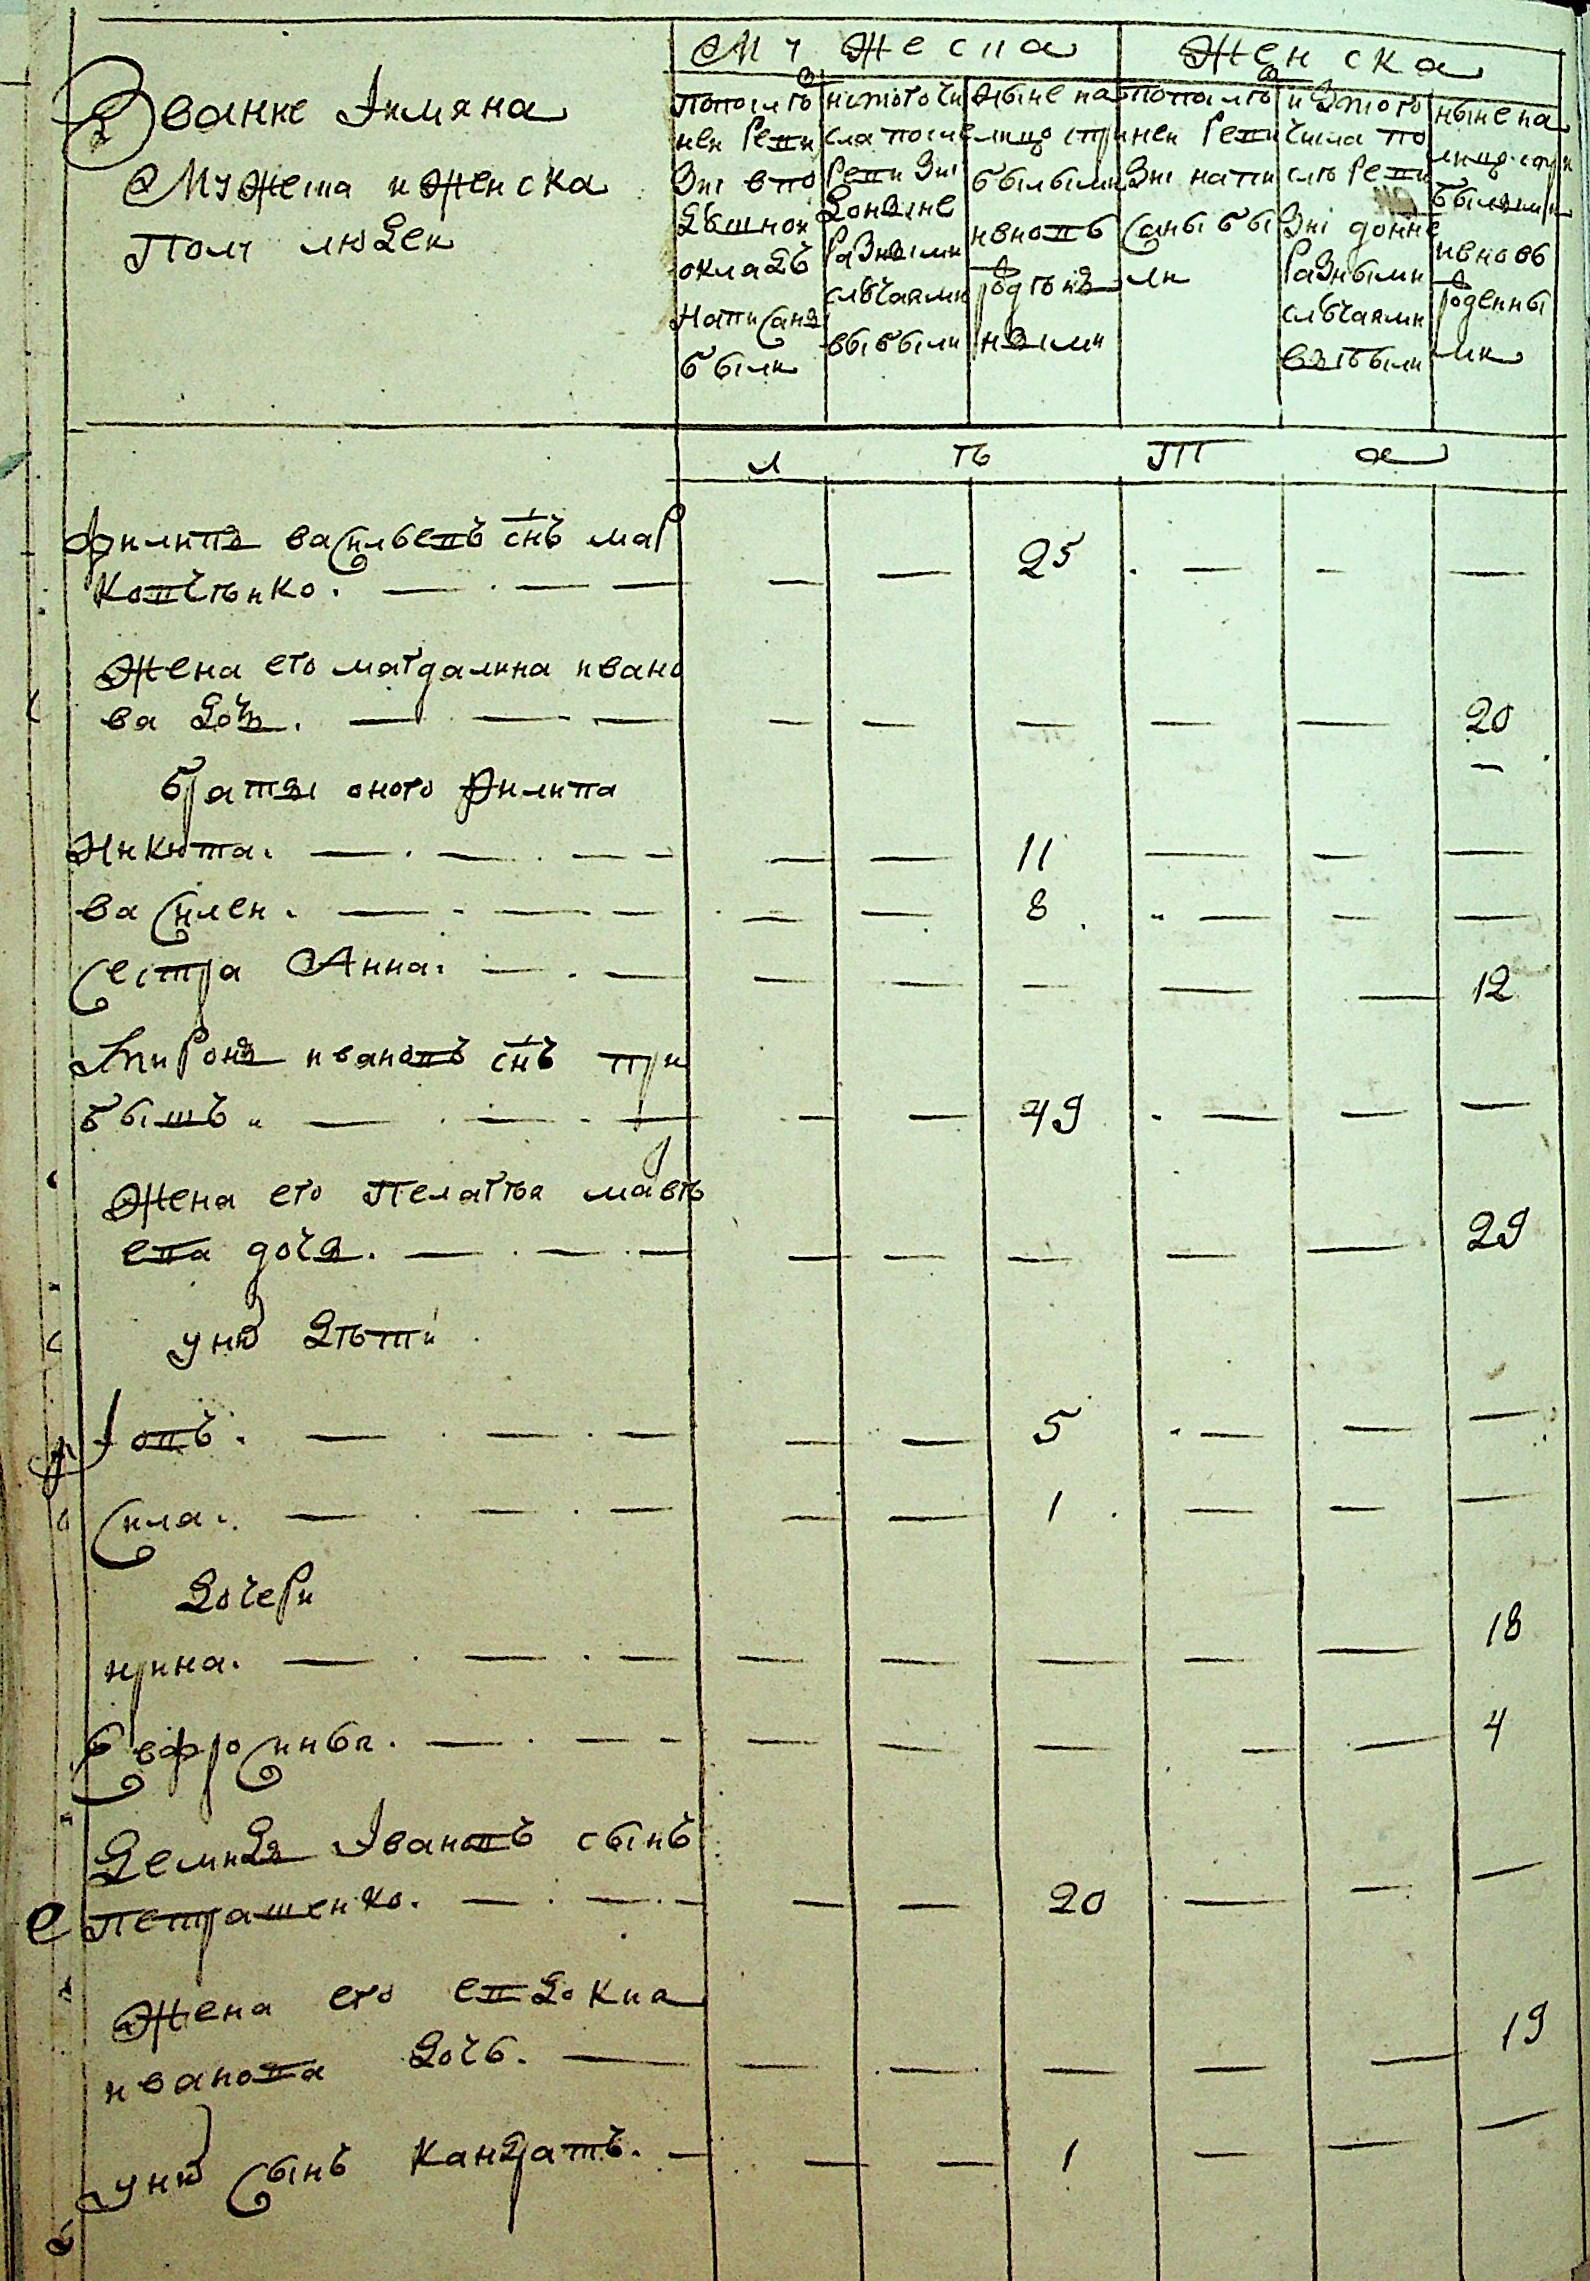 Мужеска
Женска
Звание Имяна
Мужеска и Женска
Полу людей
Попослѣ
ней реви
зиі в по
душной
окладъ
написаны
были
изтого чи
сла после
ревизиі
доныне
разными
случаями
выбыли
Ныне на
лицо с при
былыми
и вновь
рожде
ными
попослѣ
ней реви
зиі напи
саны бы
ли
изтого
числа по
слѣ реви
зиі донне
разными
случаями
выбыли
ныне на
лицо с при
былыми
и вновь
рожденны
ми
л ѣ т а
Филипъ васильевъ снъ мар
ковченко. 25
Жена его магдалина ивано
ва дочь. 20
братья оного Филипа
Никита. 11
василей. 8
Сестра Анна. 12
Спиронъ ивановъ снъ при
бышъ 49
Жена его Пелагѣя мавѣ
ева дочь. 29
у них дѣти
Іовъ. 5
Сила. 1
Дочери
ирина. 18
Евфросинья. 4
Демидъ Івановъ сынъ
петрашенко. 20
Жена его евдокиа
иванова дочь. 19
у них сынъ Кандратъ. 1